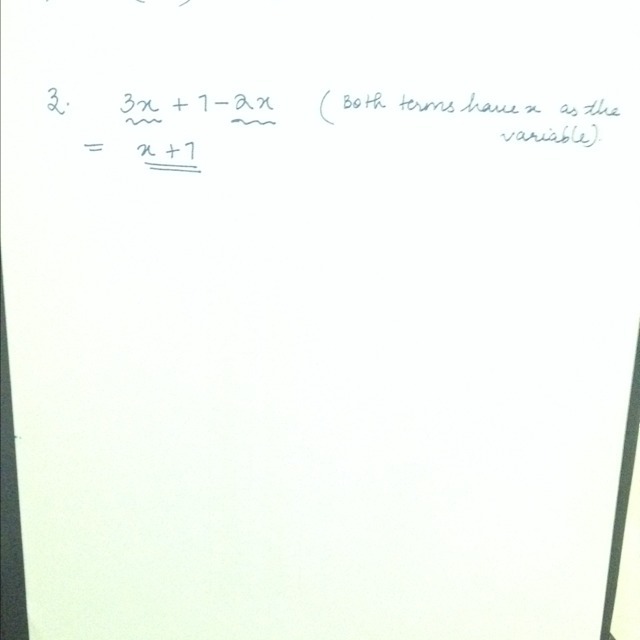 3. 3x + 7 - 2x (Both terms have x as the
variable).
= x + 7